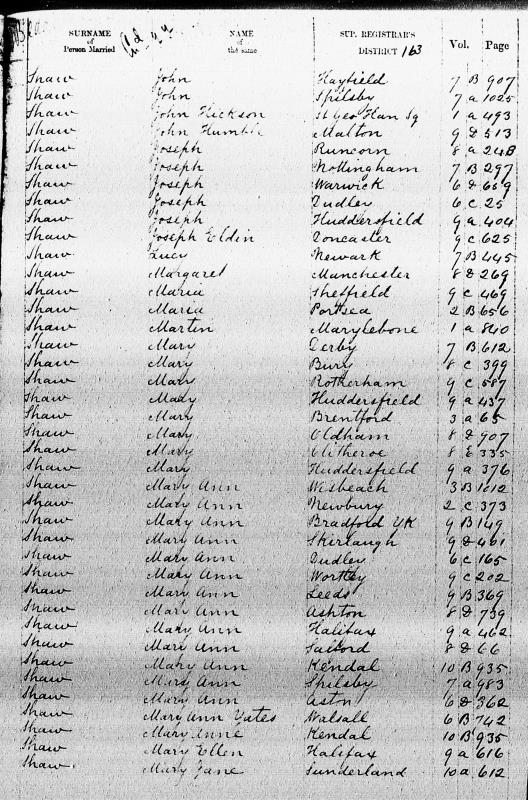 SURNAME of Person Married NAME of the same SUP. REGISTRAR'S DISTRICT 163 Vol. Page
Shaw John Hayfield 7 B 907
Shaw John Spilsby 7 a 1025
Shaw John Hickson St Geo Han Sq 1 a 493
Shaw John Humble Malton 9 D 513
Shaw Joseph Runcorn 8 a 248
Shaw Joseph Nottingham 7 B 297
Shaw Joseph Warwick 6 D 669
Shaw Joseph Dudley 6 C 25
Shaw Joseph Huddersfield 9 a 404
Shaw Joseph Eldin Doncaster 9 C 625
Shaw Lucy Newark 7 B 445
Shaw Margaret Manchester 8 D 269
Shaw Maria Sheffield 9 C 469
Shaw Maria Portsea 2 B 656
Shaw Martin Marylebone 1 a 840
Shaw Mary Derby 7 B 612
Shaw Mary Bury 8 C 399
Shaw Mary Rotherham 9 C 587
Shaw Mary Huddersfield 9 a 437
Shaw Mary Brentford 3 a 65
Shaw Mary Oldham 8 D 907
Shaw Mary Clitheroe 8 E 335
Shaw Mary Huddersfield 9 a 376
Shaw Mary Ann Wisbeach 3 B 1012
Shaw Mary Ann Newbury 2 C 373
Shaw Mary Ann Bradford YK 9 B 149
Shaw Mary Ann Skirlaugh 9 D 461
Shaw Mary Ann Dudley 6 C 165
Shaw Mary Ann Wortley 9 C 202
Shaw Mary Ann Leeds 9 B 369
Shaw Mary Ann Ashton 8 D 739
Shaw Mary Ann Halifax 9 a 462
Shaw Mary Ann Salford 8 D 66
Shaw Mary Ann Kendal 10 B 935
Shaw Mary Ann Spilsby 7 a 983
Shaw Mary Ann Aston 6 D 362
Shaw Mary Ann Yates Walsall 6 B 742
Shaw Mary Anne Kendal 10 B 935
Shaw Mary Ellen Halifax 9 a 616
Shaw Mary Jane Sunderland 10 a 612